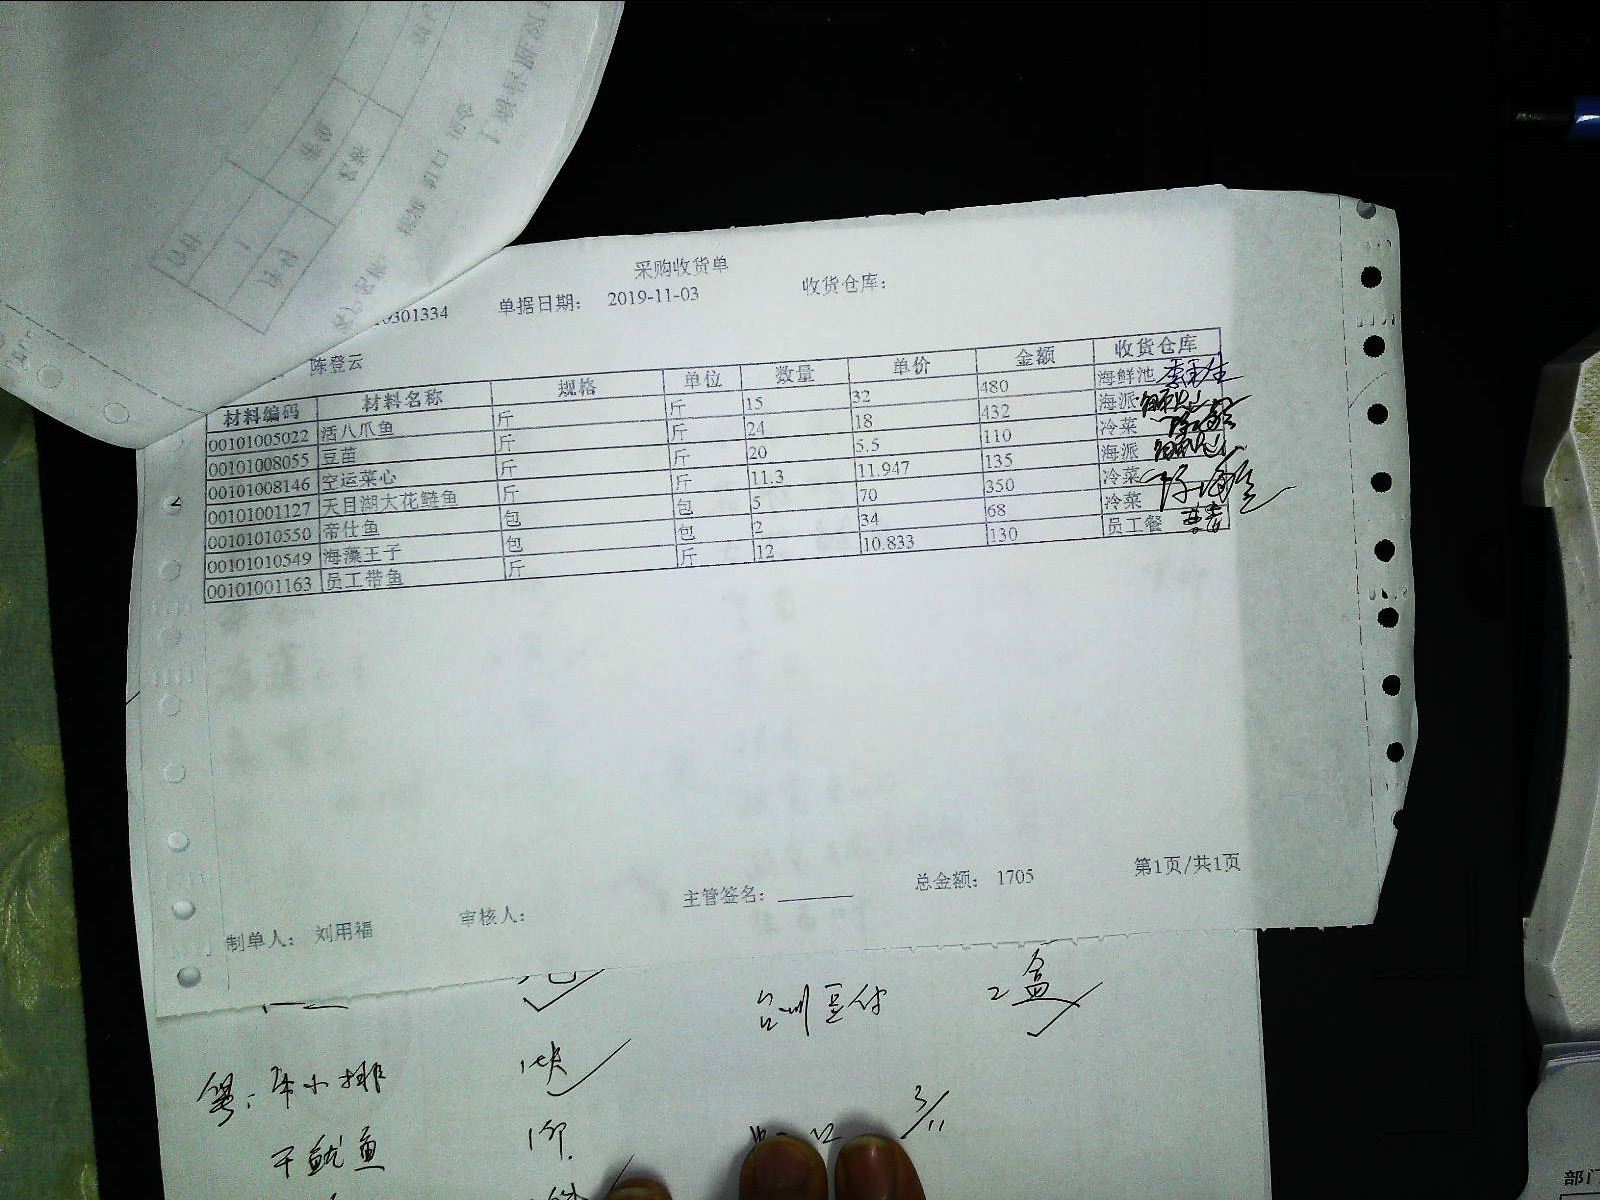 采购收货单
0301334 单据日期： 2019-11-03 收货仓库：
陈登云
材料编码 材料名称 规格 单位 数量 单价 金额 收货仓库
00101005022 活八爪鱼 斤 斤 15 32 480 海鲜池
00101008055 豆苗 斤 斤 24 18 432 海派
00101008146 空运菜心 斤 斤 20 5.5 110 冷菜
00101001127 天目湖大花鲢鱼 斤 斤 11.3 11.947 135 海派
00101010550 帝仕鱼 包 包 5 70 350 冷菜
00101010549 海藻王子 包 包 2 34 68 冷菜
00101001163 员工带鱼 斤 斤 12 10.833 130 员工餐
制单人： 刘用福 审核人： 主管签名： 总金额： 1705 第1页/共1页
台州豆付 2盒
牛小排 1块
干鱿鱼
3/11
部门